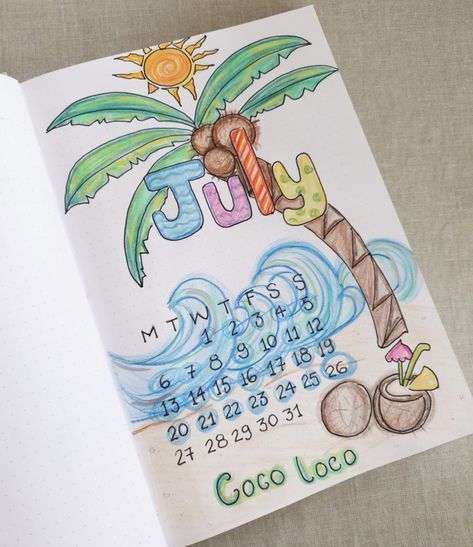 July
M T W T F S S
1 2 3 4 5
6 7 8 9 10 11 12
13 14 15 16 17 18 19
20 21 22 23 24 25 26
27 28 29 30 31
Coco loco